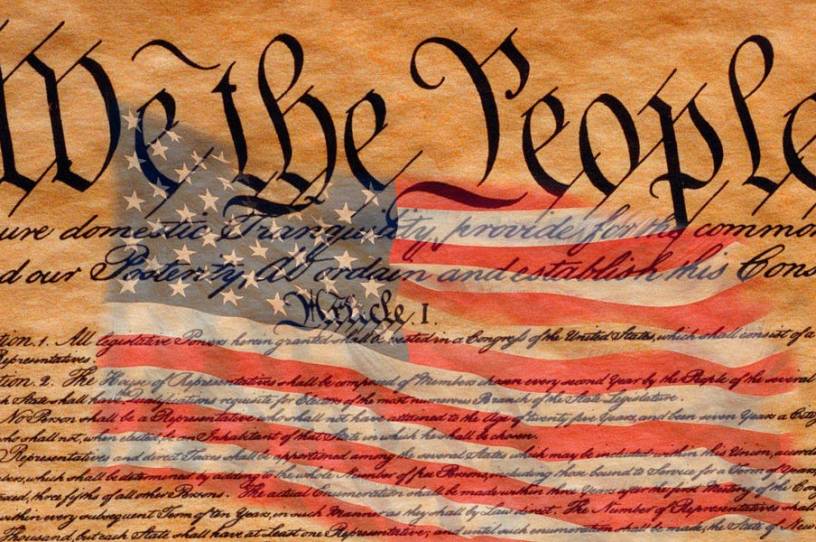 We the People
ure domestic Tranquility, provide for the common
d our Posterity, do ordain and establish this Cons
Article. I.
tion. 1. All legislative Powers herein granted shall be vested in a Congress of the United States, which shall consist of a
Representatives.
tion. 2. The House of Representatives shall be composed of Members chosen every second Year by the People of the several
h State shall have the Qualifications requisite for Electors of the most numerous Branch of the State Legislature.
No Person shall be a Representative who shall not have attained to the Age of twenty five Years, and been seven Years a Citiz
who shall not, when elected, be an Inhabitant of that State in which he shall be chosen.
Representatives and direct Taxes shall be apportioned among the several States which may be included within this Union, accord
bers, which shall be determined by adding to the whole Number of free Persons, including those bound to Service for a Term of Years,
xed, three fifths of all other Persons. The actual Enumeration shall be made within three Years after the first Meeting of the Cong
within every subsequent Term of ten Years, in such Manner as they shall by Law direct. The Number of Representatives shall
Thousand, but each State shall have at Least one Representative; and until such enumeration shall be made, the State of New